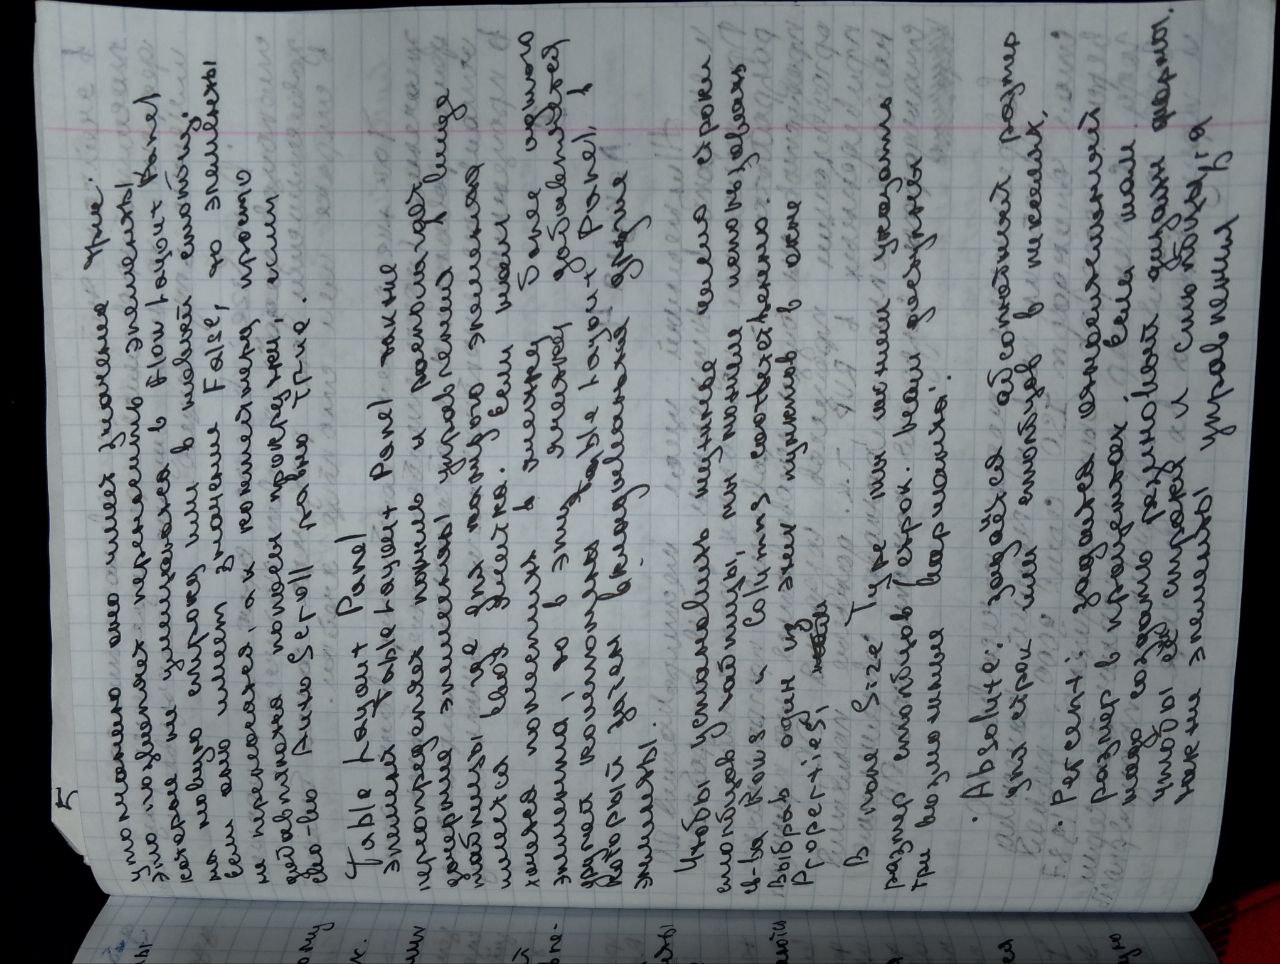 5
умолчанию оно имеет значение true.
Это позволяет переносить элементы,
которые не умещаются в Flow Layout Panel
на новую строку или в новый столбец.
Если оно имеет значение False, то элементы
не переносятся, а к контейнеру просто
добавляются полосы прокрутки, если
св-во Auto Scroll равно true.
Table Layout Panel
Элемент Table Layout Panel также
переопределяет панель и располагает
дочерние элементы управления в виде
таблицы, где для каждого элемента
имеется своя ячейка. Если нам
хочется поместить в ячейку более одного
элемента, то в эту ячейку добавляется
другой компонент Table Layout Panel, в
который затем вкладываются другие
элементы.
Чтобы установить нужное число строки
столбцов таблицы, мы можем использовать
св-ва Rows и Columns соответственно.
Выбрав один из этих пунктов в окне
Properties,
В поле Size Type мы можем указать
размер столбцов / строк. Нам доступны
три возможные варианта:
· Absolute: задаётся абсолютный размер
для строк или столбцов в пикселях,
· Percent: задаётся относительный
размер в процентах. Если нам
надо создать резиновый дизайн формы,
чтобы её строки и столбцы, а
также элементы управления
ны
ому
к.
ими
й
пе-
нты
ной
ся
ую